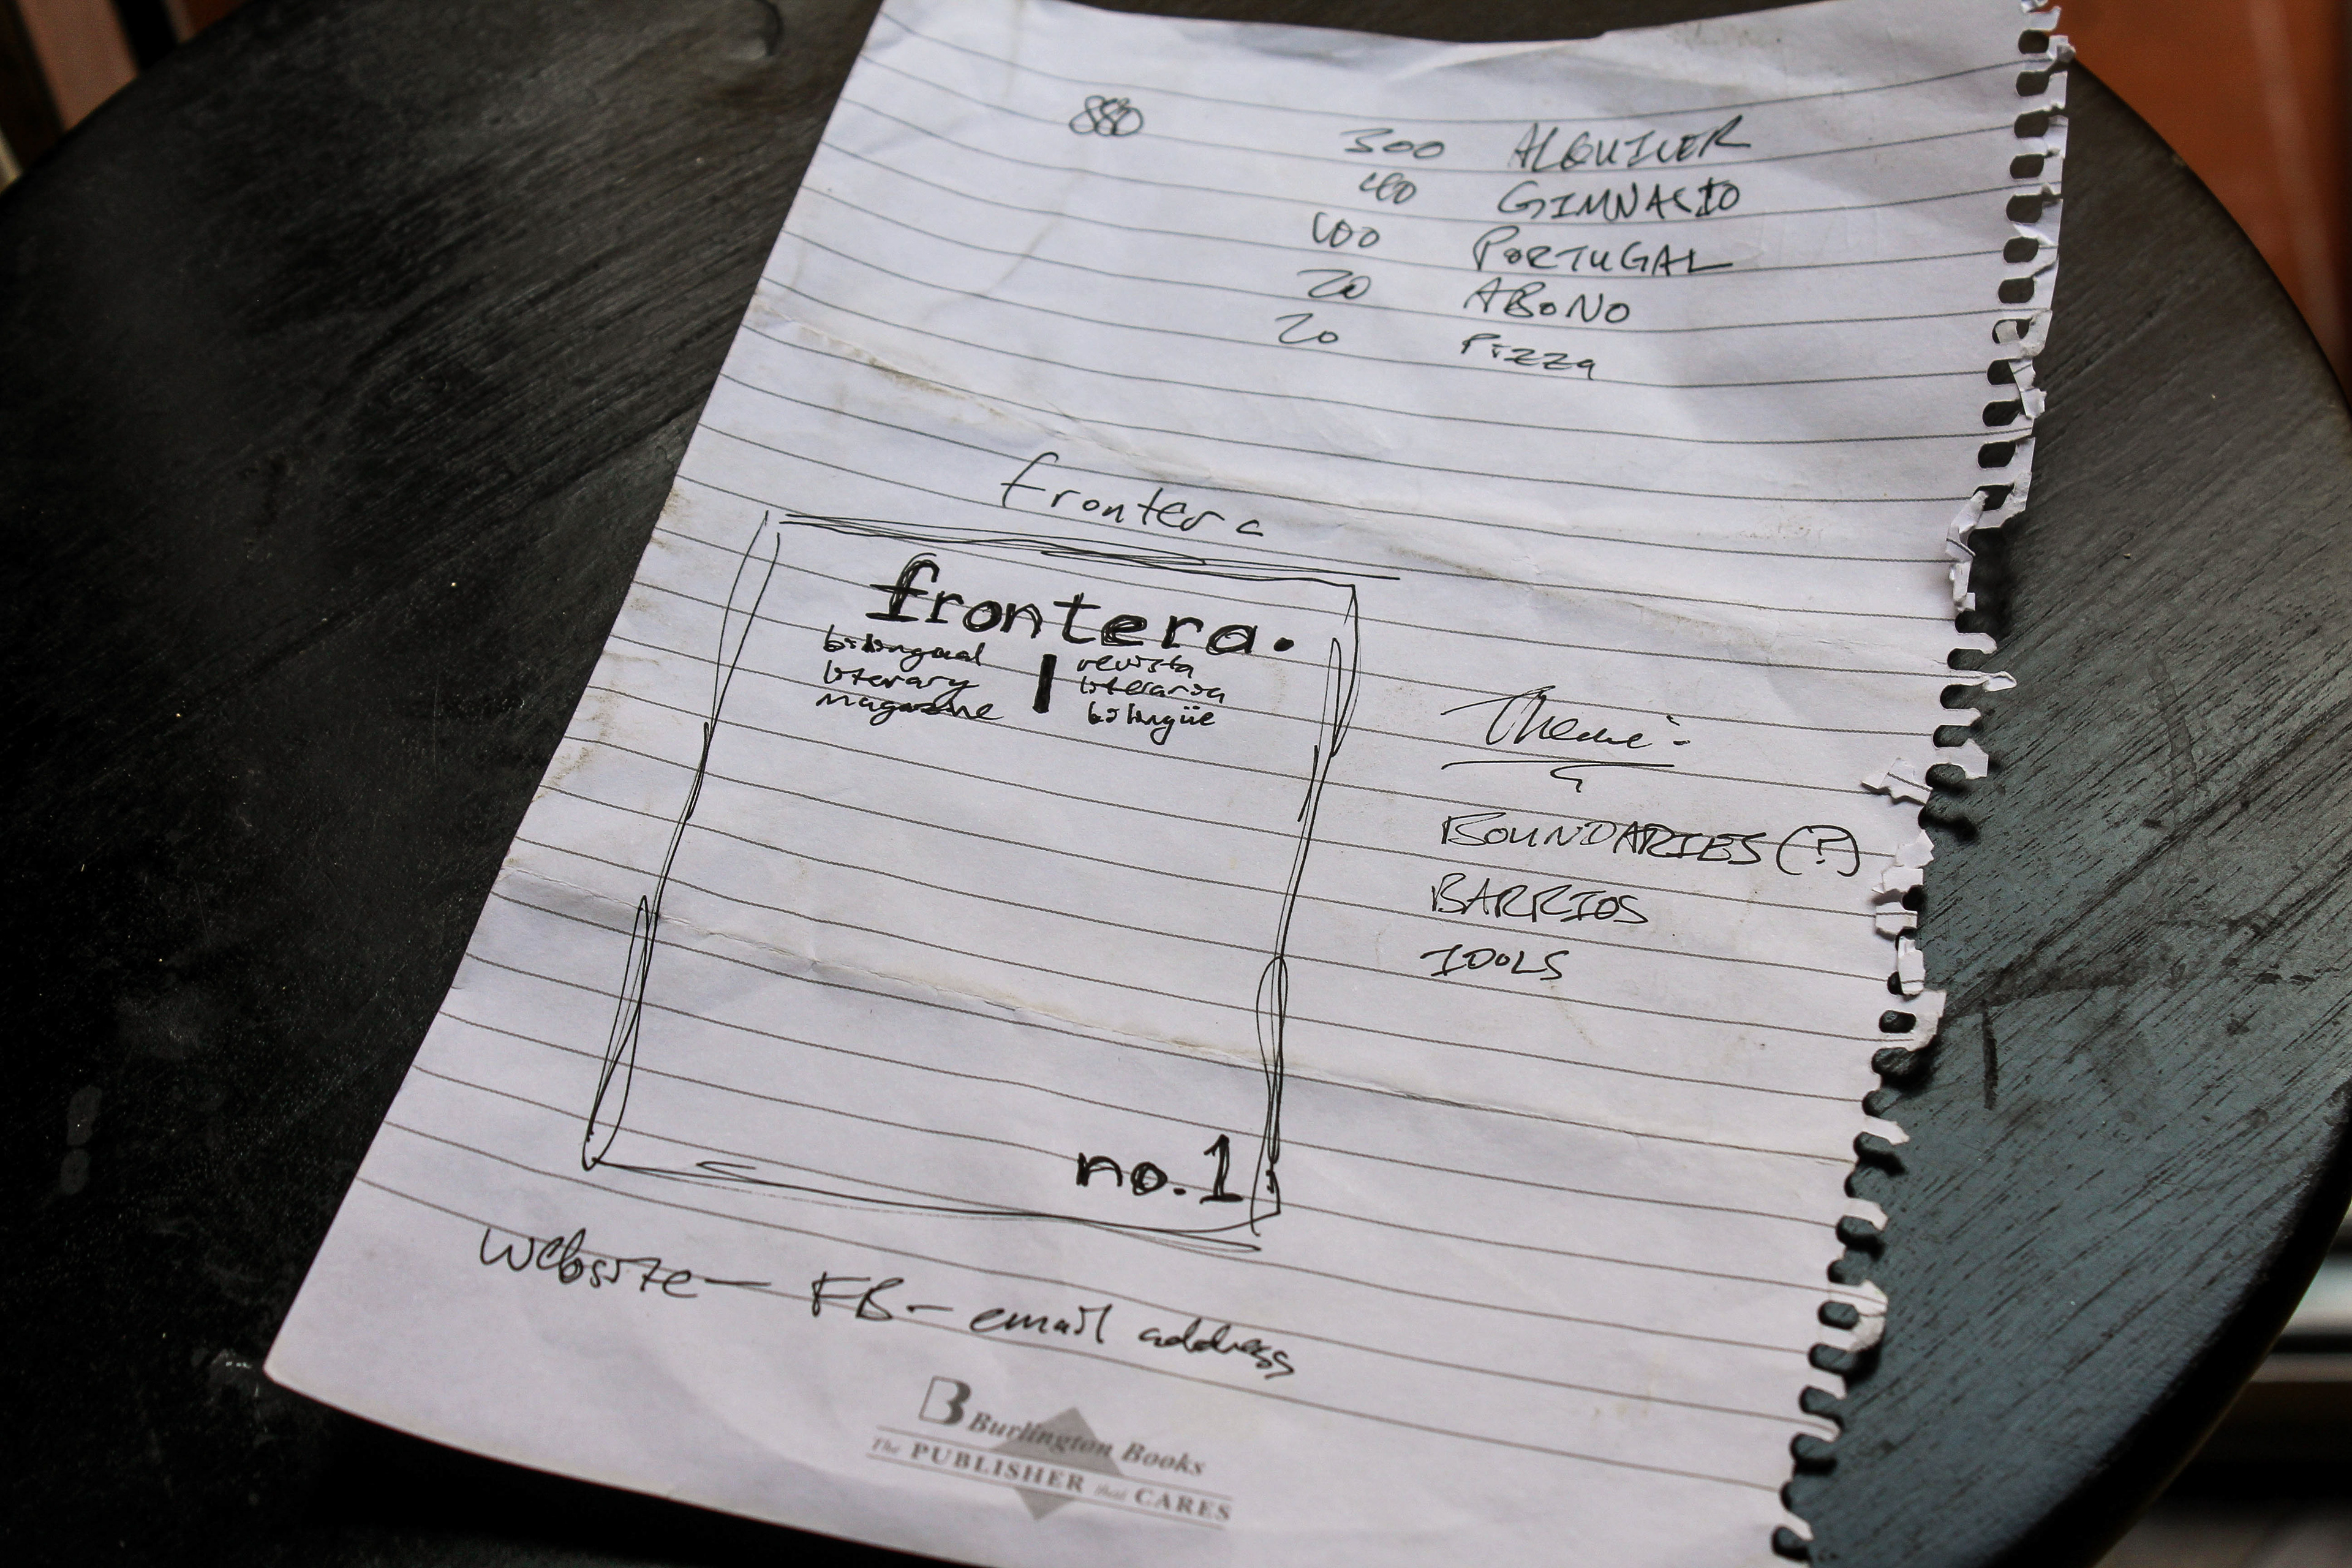 880
300 ALQUILER
40 GIMNACIO
100 PORTUGAL
20 ABONO
20 PIZZA
frontera
frontera.
bilingual literary magazine
revista literaria bilingüe
Theme:
BOUNDARIES (?)
BARRIOS
IDOLS
no.1
Website — FB — email address
B Burlington Books
The PUBLISHER that CARES